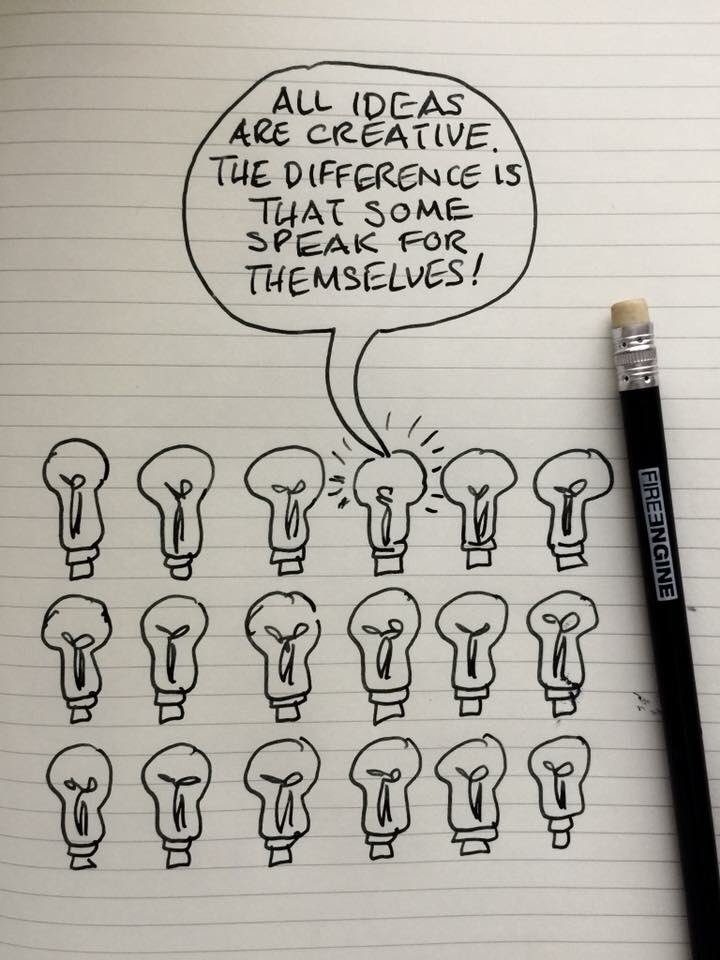 ALL IDEAS
ARE CREATIVE.
THE DIFFERENCE IS
THAT SOME
SPEAK FOR
THEMSELVES!
FIREENGINE